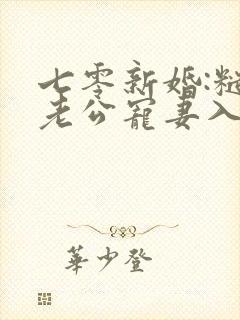 七零新婚:糙
老公宠妻入
華少登